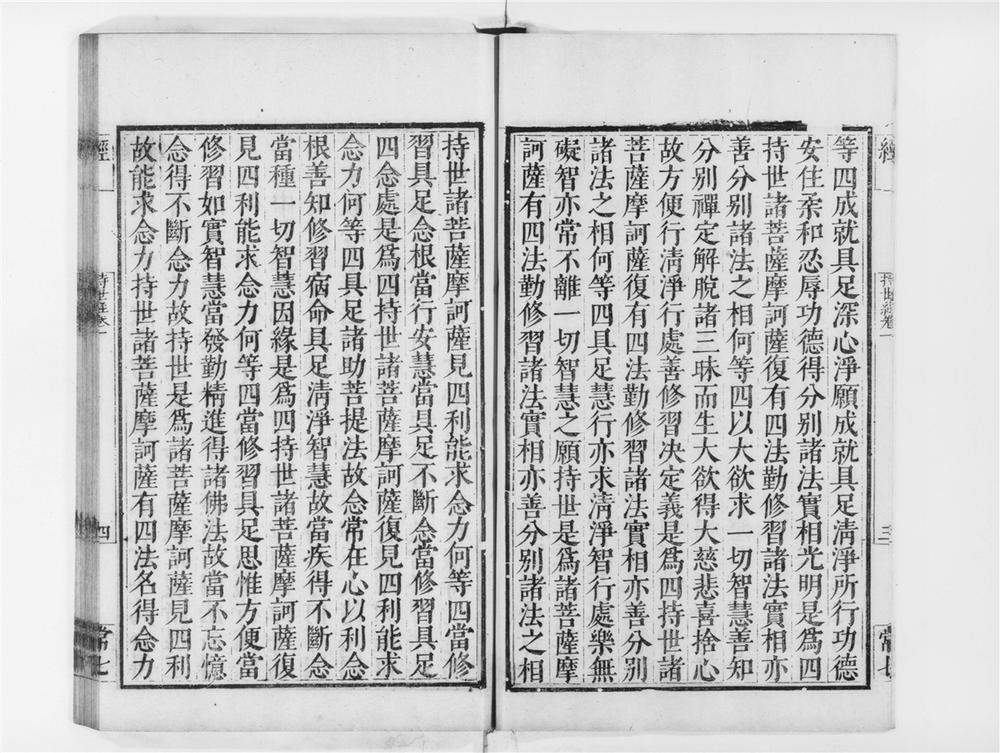 等四成就具足深心淨願成就具足清淨所行功德
安住柔和忍辱功德得分別諸法實相光明是為四
持世諸菩薩摩訶薩復有四法勤修習諸法實相亦
善分別諸法之相何等四以大欲求一切智慧善知
分別禪定解脫諸三昧而生大欲得大慈悲喜捨心
故方便行清淨行處善修習決定義是為四持世諸
菩薩摩訶薩復有四法勤修習諸法實相亦善分別
諸法之相何等四具足慧行亦求清淨智行處樂無
礙智亦常不離一切智慧之願持世是為諸菩薩摩
訶薩有四法勤修習諸法實相亦善分別諸法之相
經
持世經卷一
三
常七
持世諸菩薩摩訶薩見四利能求念力何等四當修
習具足念根當行安慧當具足不斷念當修習具足
四念處是為四持世諸菩薩摩訶薩復見四利能求
念力何等四具足諸助菩提法故念常在心以利念
根善知修習宿命具足清淨智慧故當疾得不斷念
當種一切智慧因緣是為四持世諸菩薩摩訶薩復
見四利能求念力何等四當修習具足思惟方便當
修習如實智慧當發勤精進得諸佛法故當不忘憶
念得不斷念力故持世是為諸菩薩摩訶薩見四利
故能求念力持世諸菩薩摩訶薩有四法名得念力
經
持世經卷一
四
常七